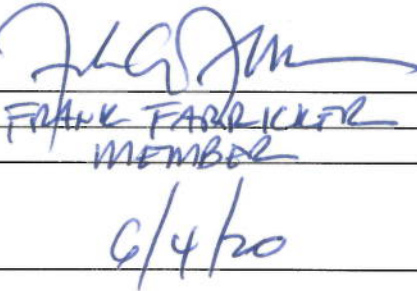 FRANK FARRICKER
MEMBER
6/4/20